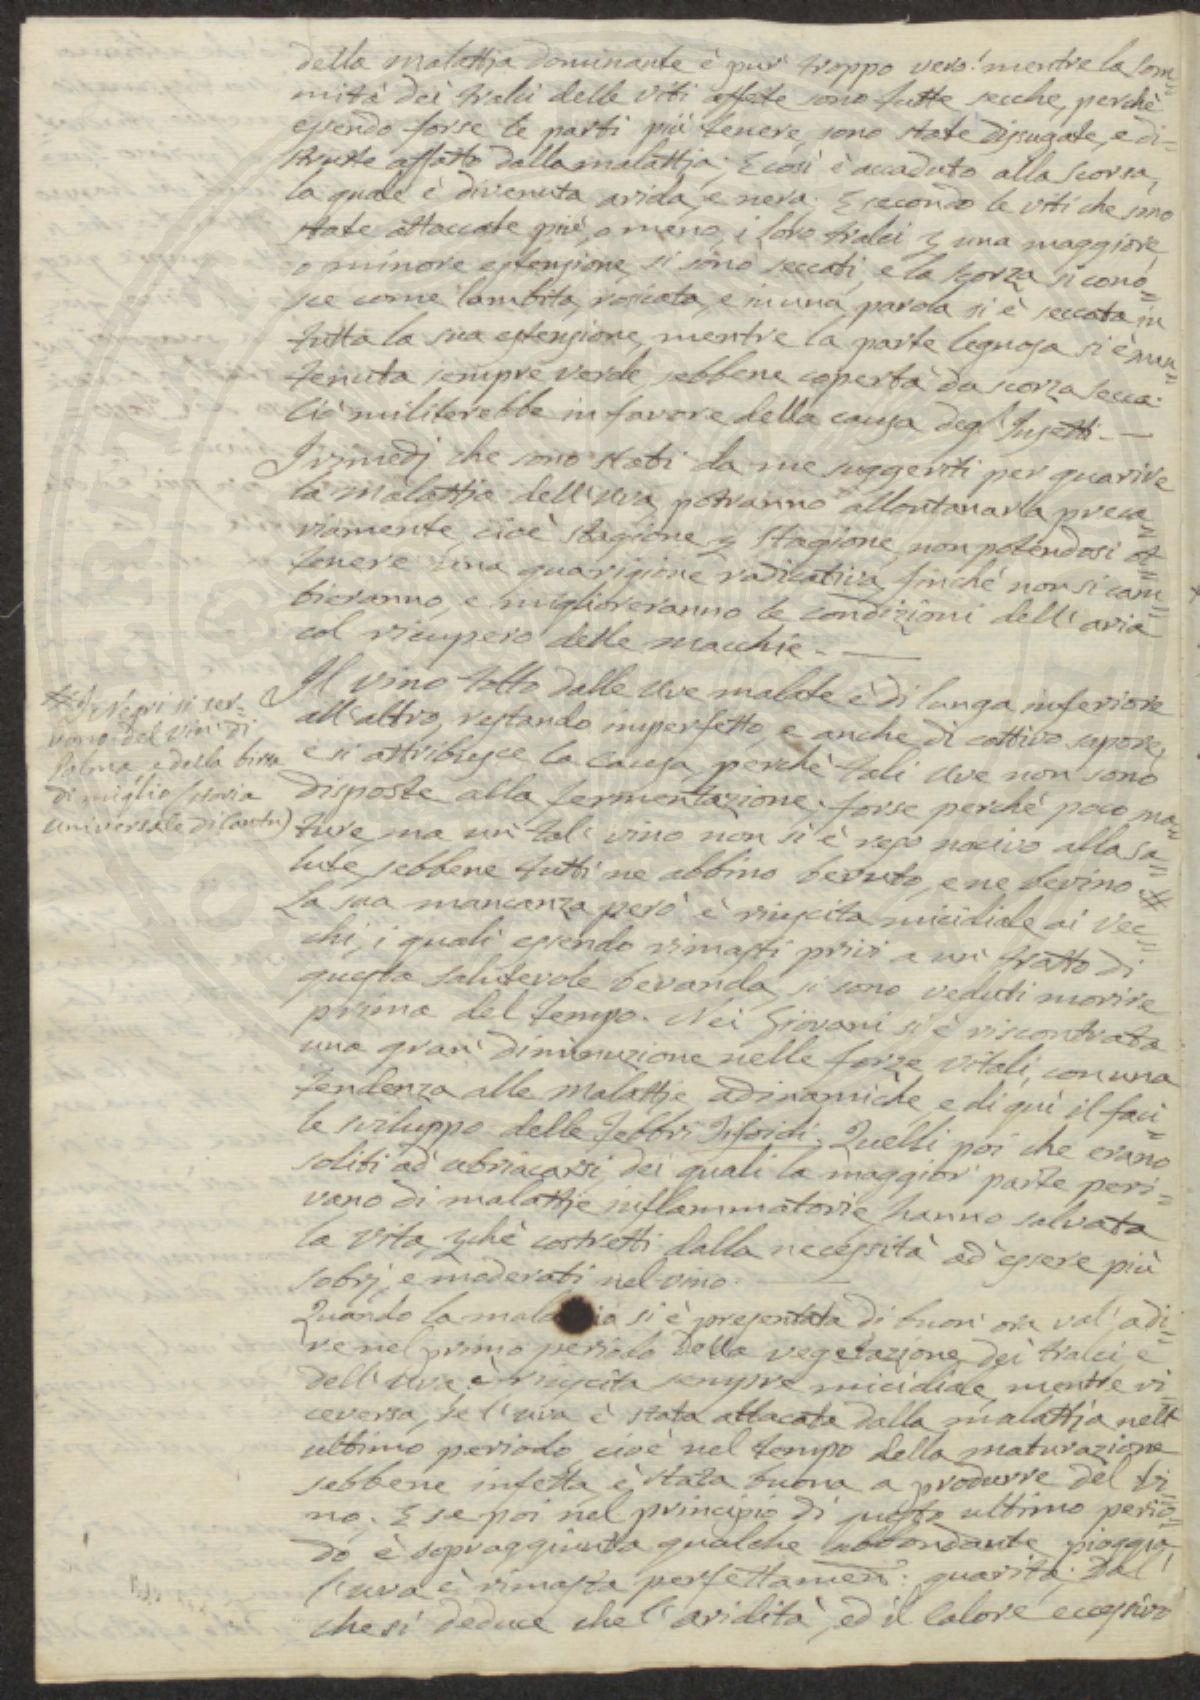 della malattia dominante è pur troppo vero! mentre la som=
mità dei tralci delle viti affette sono tutte secche, perchè
essendo forse le parti più tenere, sono state dissugate, e di=
strutte affatto dalla malattia. E così è accaduto alla scorsa,
la quale è divenuta arida, e nera. E secondo le viti che sono
state attaccate più, o meno, i loro tralci p una maggiore,
o minore estensione si sono seccati, e la scorza si cono=
sce come lambita, rosicata, e in una parola si è seccata in
tutta la sua estensione, mentre la parte legnosa si è man=
tenuta sempre verde sebbene coperta da scorza secca.
Ciò militerebbe in favore della causa degl'Insetti. —
I rimedj che sono stati da me suggeriti per guarire
la malattia dell'uva potranno allontanarla preca=
riamente, cioè stagione p stagione, non potendosi ot=
tenere una guarigione radicativa, finchè non si cam=
bieranno, e miglioreranno le condizioni dell'aria
col ricupero delle macchie. —
Il vino tolto dalle uve malate è di lunga inferiore
all'altro, restando imperfetto, e anche di cattivo sapore,
e si attribuisce la causa, perchè tali uve non sono
disposte alla fermentazione, forse perchè poco ma=
ture, ma un tal vino non si è reso nocivo alla sa=
lute sebbene tutti ne abbino bevuto, e ne bevino #
# I Negri si ser=
vono del vin di
Palma e della birra
di miglio (storia
universale di Cantù)
La sua mancanza però è riuscita micidiale ai vec=
chi, i quali essendo rimasti privi a un tratto di
questa salutevole bevanda, si sono veduti morire
prima del tempo. Nei Giovani si è riscontrata
una gran diminuzione nelle forze vitali, con una
tendenza alle malattie adinamiche, e di quì il faci=
le sviluppo delle febbri tifoidi. Quelli poi che erano
soliti ad ubriacarsi, dei quali la maggior parte peri=
vano di malattie inflammatorie, hanno salvata
la vita, pchè costretti dalla necessità ad essere più
sobrj, e moderati nel vino. —
Quando la mala ia si è presentata di buon ora val'a di=
re nel primo periodo della vegetazione dei tralci, e
dell'uva, è riuscita sempre micidiale, mentre vi=
ceversa, se l'uva è stata attacata dalla malattia nell'
ultimo periodo, cioè nel tempo della maturazione
sebbene infetta, è stata buona a produrre del vi=
no. E se poi nel principio di questo ultimo perio=
do, è sopraggiunta qualche abbondante pioggia,
l'uva è rimasta perfettamen: guarita. Dal
che si deduce che l'aridità, ed il calore eccessivo